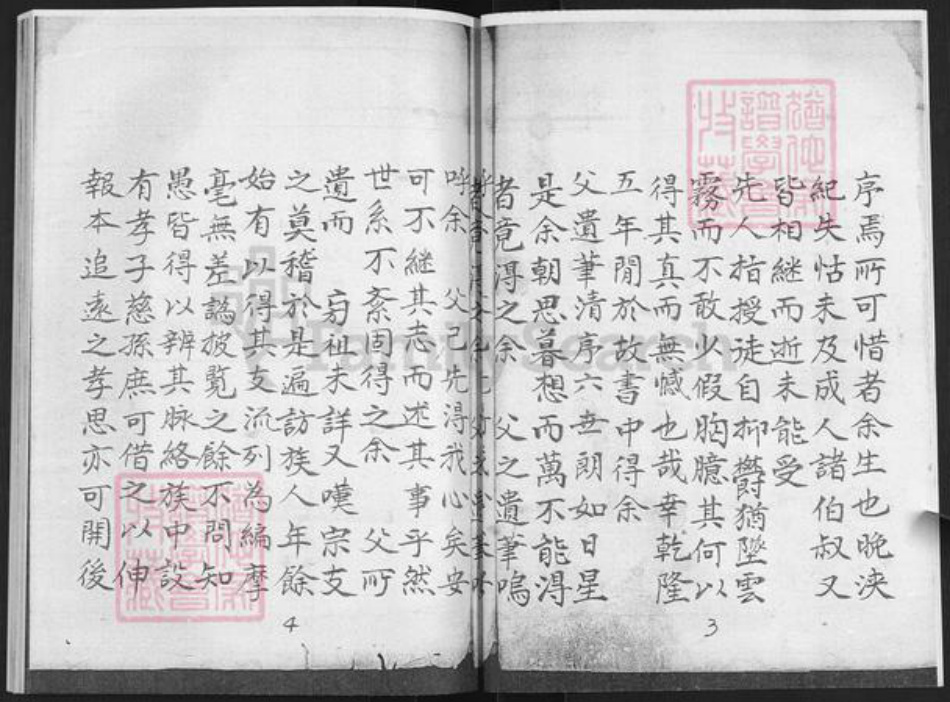 序焉所可惜者余生也晚浹
紀失怙未及成人諸伯叔又
皆相繼而逝未能受
先人指授徒自抑欝猶墜雲
霧而不敢少假胸臆其何以
得其真而無憾也哉幸乾隆
五年閒於故書中得余
父遺筆清序六世朗如日星
是余朝思暮想而萬不能淂
者竟淂之余 父之遺筆嗚
呼余 父已先淂我心矣安
可不継其志而述其事乎然
世系不紊固得之余 父所
遺而 旁祖未詳又嘆宗支
之莫稽於是遍訪族人年餘
始有以得其支流列為編摩
毫無差譌披覧之餘不問知
愚皆得以辨其脉絡族中設
有孝子慈孫庶可借之以伸
報本追遠之孝思亦可開後
3
4
FamilySearch